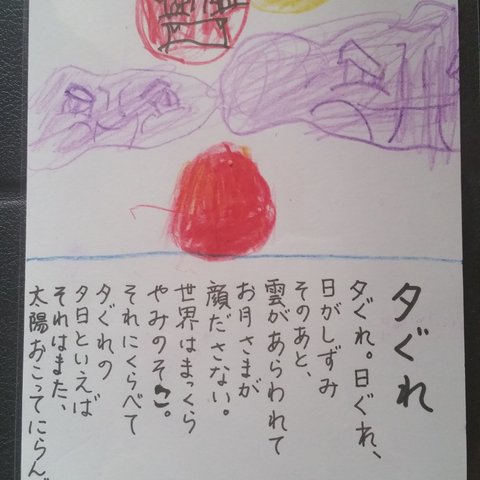 夕ぐれ
夕ぐれ。日ぐれ、
日がしずみ
そのあと、
雲があらわれて
お月さまが
顔ださない。
世界はまっくら
やみのそこ。
それにくらべて
夕ぐれの
夕日といえば
それはまた、
太陽おこってにらんで